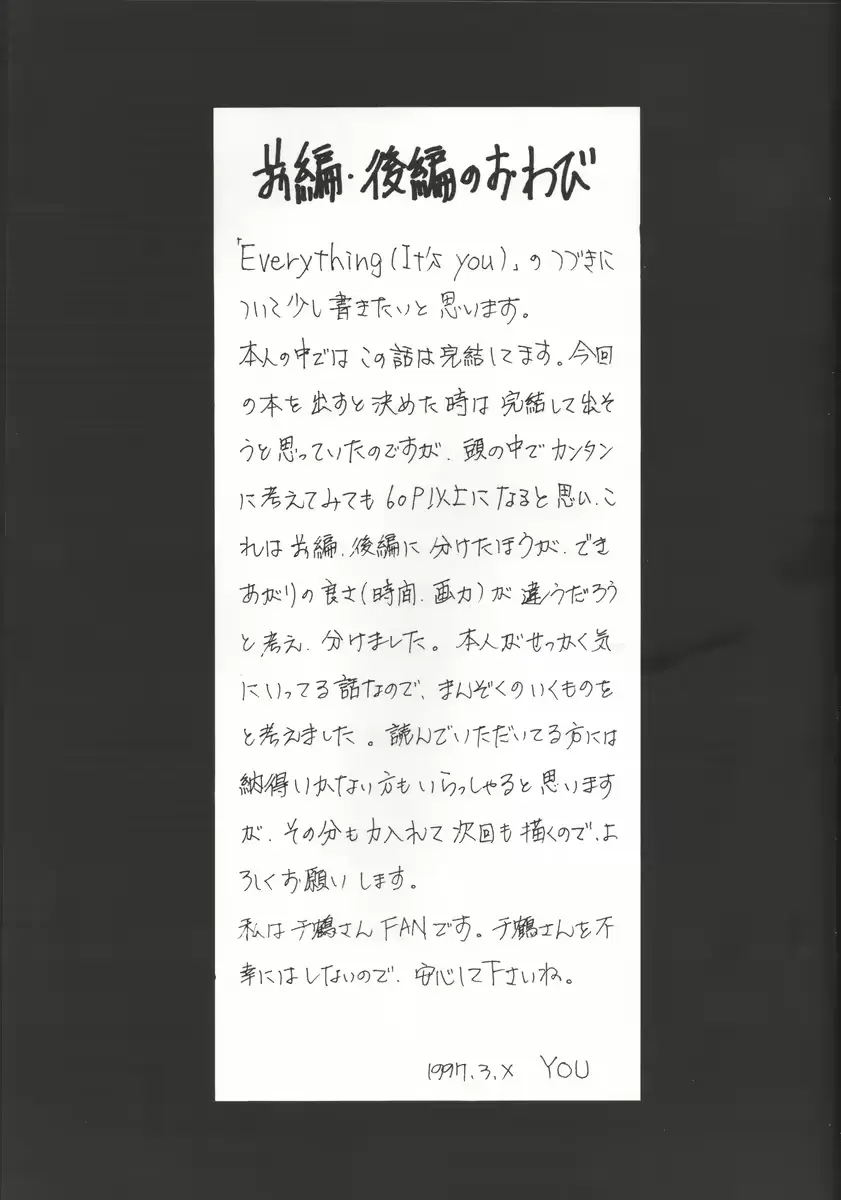 前編・後編のおわび
「Everything (It's you)」のつづきに
ついて少し書きたいと思います。
本人の中ではこの話は完結してます。今回
の本を出すと決めた時は完結して出そ
うと思っていたのですが、頭の中でカンタン
に考えてみても60P以上になると思い、こ
れは前編、後編に分けたほうが、でき
あがりの良さ(時間、画力)が違うだろう
と考え、分けました。本人がせっかく気
にいってる話なので、まんぞくのいくものを
と考えました。読んでいただいてる方には
納得いかない方もいらっしゃると思います
が、その分も力入れて次回も描くので、よ
ろしくお願いします。
私は千鶴さんFANです。千鶴さんを不
幸にはしないので、安心して下さいね。
1997.3.X YOU